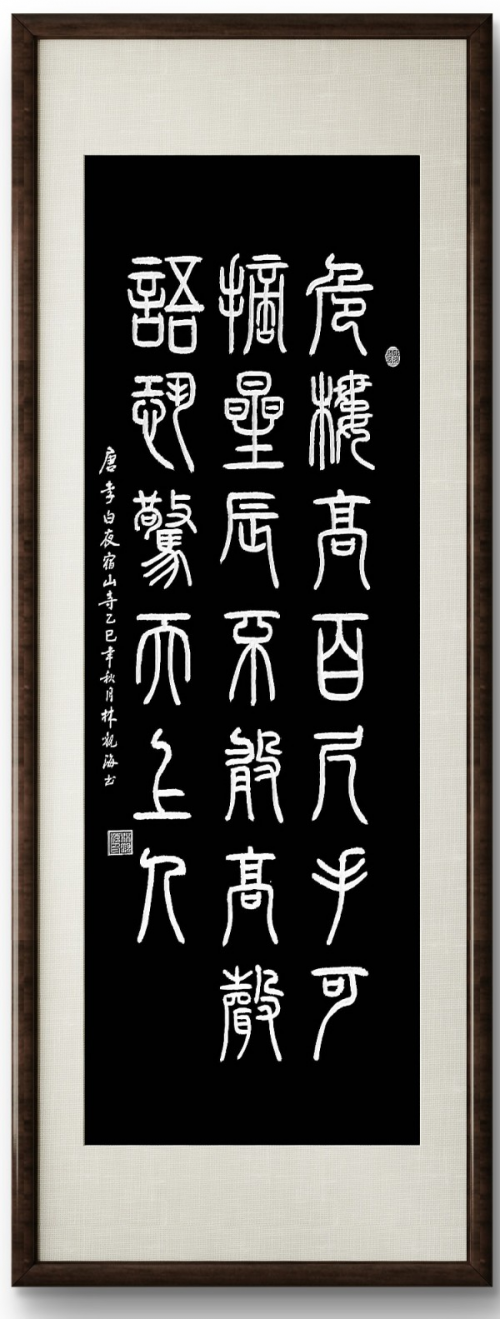 危樓高百尺手可
摘星辰不敢高聲
語恐驚天上人
唐李白夜宿山寺乙巳年秋月林海书